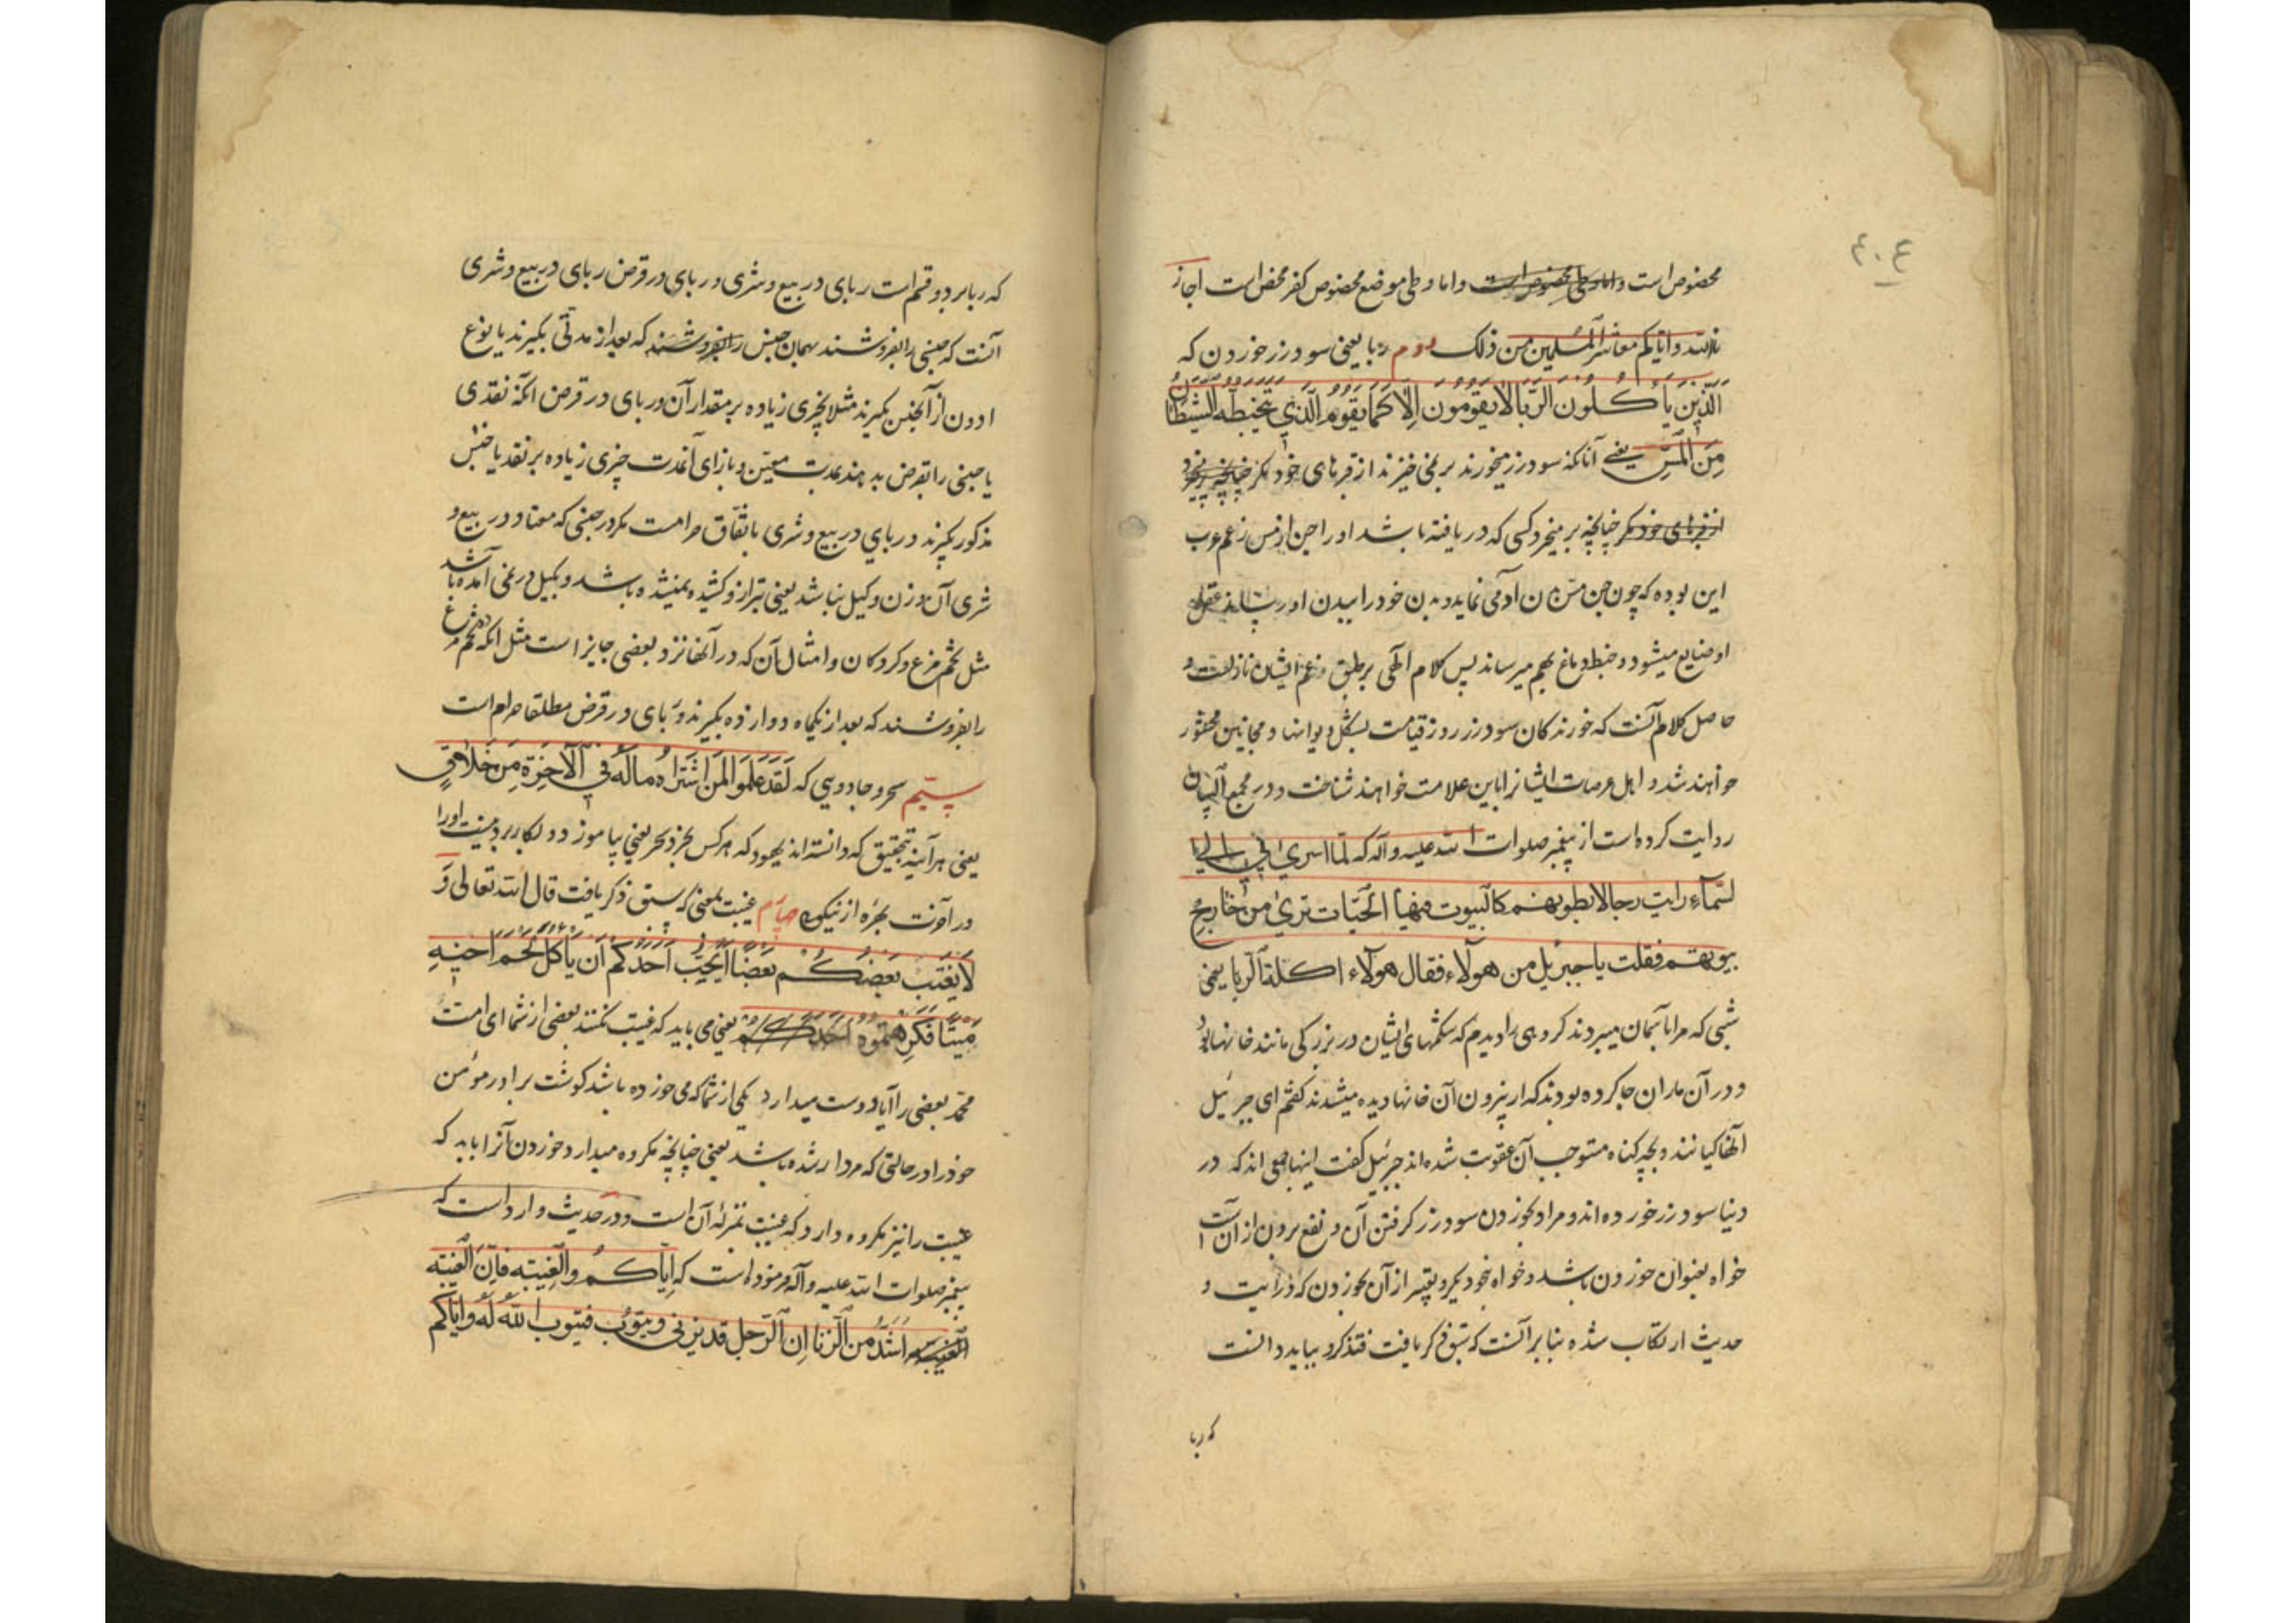 ع ۴۰
مخصوص است واما وطی مخصوص است واما وطی موضع مخصوص کفر محض است اجاز
نا الله وایاکم معاشر المسلمین من ذلک دوم ربا یعنی سود زر خوردن که
الَّذِینَ یَأکُلُونَ الرِّبَا لَا یَقُومُونَ اِلَّا کَمَا یَقُومُ الَّذِی یَتَخَبَّطُهُ الشَّیْطَانُ
مِنَ الْمَسِّ یعنی آنانکه سود زر میخورند بر نمی خیزند از قبرهای خود مکر چنانچه بر میخیزد
از قبرهای خود مکر چنانچه بر میخیزد کسی که دریافته باشد او را جن از مس زعم عرب
این بوده که چون جن مس بدن آدمی نماید و بدن خود را ببدن او رساند عقل
او ضایع میشود و خبط دماغ بهم میرساند پس کلام الهی بر طبق زعم ایشان نازلست و
حاصل کلام آنست که خورندکان سود زر روز قیامت بشکل دیوانها و مجانین محشور
خواهند شد و اهل عرصات ایشانرا باین علامت خواهند شناخت و در مجمع البیان
روایت کرده است از پیغمبر صلوات الله علیه وآله که لما اسری بی الی
السّمآء رایت رجالا بطونهم کالبیوت فیها الحیّات تری من خارج
بیوتهم فقلت یا جبرئیل من هولآء فقال هولآء اکلة الربا یعنی
شبی که مرا بآسمان میبردند کروهی را دیدم که شکمهای ایشان در بزرکی مانند خانها بود
و در آن ماران جا کرده بودند که از بیرون آن خانها دیده میشدند کفتم ای جبرئیل
آنها کیانند و بچه کناه مستوجب آن عقوبت شده اند جبرئیل کفت اینها جمعی اند که در
دنیا سود زر خورده اند و مراد بخوردن سود زر کرفتن آن و نفع بردن از آن است
خواه بعنوان خوردن باشد و خواه بنحو دیکر و تعبیر از آن بخوردن که در آیت و
حدیث ارتکاب شده بنا بر آنست که سبق ذکر یافت فتذکر و بباید دانست
که ربا
که ربا بر دو قسم است ربای در بیع و شری و ربای در قرض ربای در بیع و شری
آنست که جنسی را بفروشند بهمان جنس را بفروشند که بعد از مدتی بکیرند یا نوع
ادون از آنجنس بکیرند مثلا بچیزی زیاده بر مقدار آن و ربای در قرض آنکه نقدی
یا جنسی را بقرض بدهند بمدت معیّن و بازای آنمدت چیزی زیاده بر نقد یا جنس
مذکور بکیرند و ربای در بیع و شری باتفاق حرامست مکر در جنسی که معتاد در بیع و
شری آن وزن و کیل نباشد یعنی بترازو کشیده نمیشده باشد و بکیل در نمی آمده باشد
مثل تخم مرغ و کردکان و امثال آن که در آنها نزد بعضی جایز است مثل آنکه ده تخم مرغ
را بفروشند که بعد از یکماه دوازده بکیرند و ربای در قرض مطلقا حرام است
سیّم سحر و جادویی که لَقَدْ عَلِمُوا لَمَنِ اشْتَرَاهُ مَا لَهُ فِی الْآخِرَةِ مِنْ خَلَاقٍ
یعنی هر آینه بتحقیق که دانسته اند یهود که هر کس بخرد سحر یعنی بیاموزد و بکار برد نیست او را
در آخرت بهره از نیکویی چهارم غیبت بمعنی که سبق ذکر یافت قال الله تعالی وَ
لَا یَغْتَبْ بَعْضُکُمْ بَعْضًا اَیُحِبُّ اَحَدُکُمْ اَنْ یَأکُلَ لَحْمَ اَخِیهِ
مَیْتًا فَکَرِهْتُمُوهُ اَحَدُکُمْ یعنی می باید که غیبت نکنند بعضی از شما ای امت
محمد بعضی را آیا دوست میدارد یکی از شما که می خورده باشد کوشت برادر مؤمن
خود را در حالتی که مردار شده باشد یعنی چنانچه مکروه میدارد خوردن آنرا باید که
غیبت را نیز مکروه دارد که غیبت بمنزله آن است و در حدیث وارد است که
پیغمبر صلوات الله علیه وآله فرموده است که اِیّاکُم والغیبته فانّ الغیبته
الغیبته اَشَدُّ من الزنا اِن الرّجل قد یزنی و یتوب فیتوب الله له وایاکم